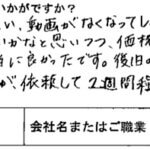 いかがですか？
い、動画がなくなってし
いかなと思いつつ、価格
当に良かったです。復旧の
が依頼して2週間程
会社名またはご職業